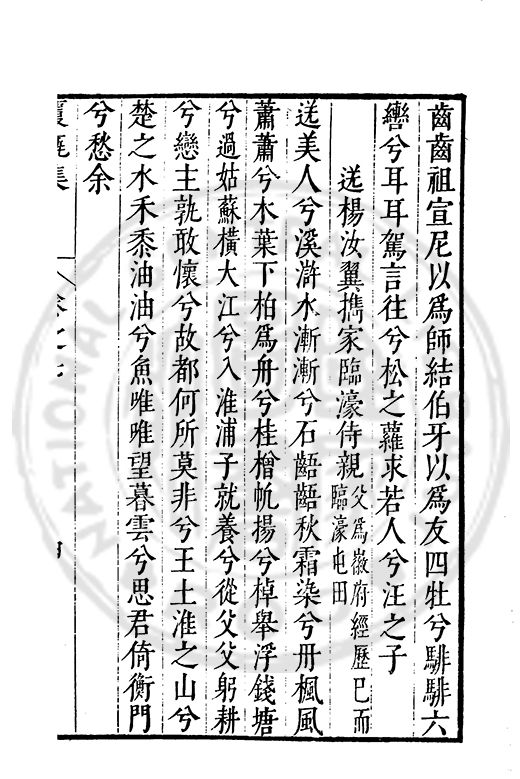 齒齒祖宣尼以爲師結伯牙以爲友四牡兮騑騑六
轡兮耳耳駕言往兮松之蘿求若人兮汪之子
送楊汝翼擕家臨濠侍親父爲徽府經歷已而臨濠屯田
送美人兮溪滸水漸漸兮石齬齬秋霜染兮丹楓風
蕭蕭兮木葉下柏爲舟兮桂檣帆揚兮棹舉浮錢塘
兮過姑蘇橫大江兮入淮浦子就養兮從父父躬耕
兮戀主孰敢懷兮故都何所莫非兮王土淮之山兮
楚之水禾黍油油兮魚唯唯望暮雲兮思君倚衡門
兮愁余